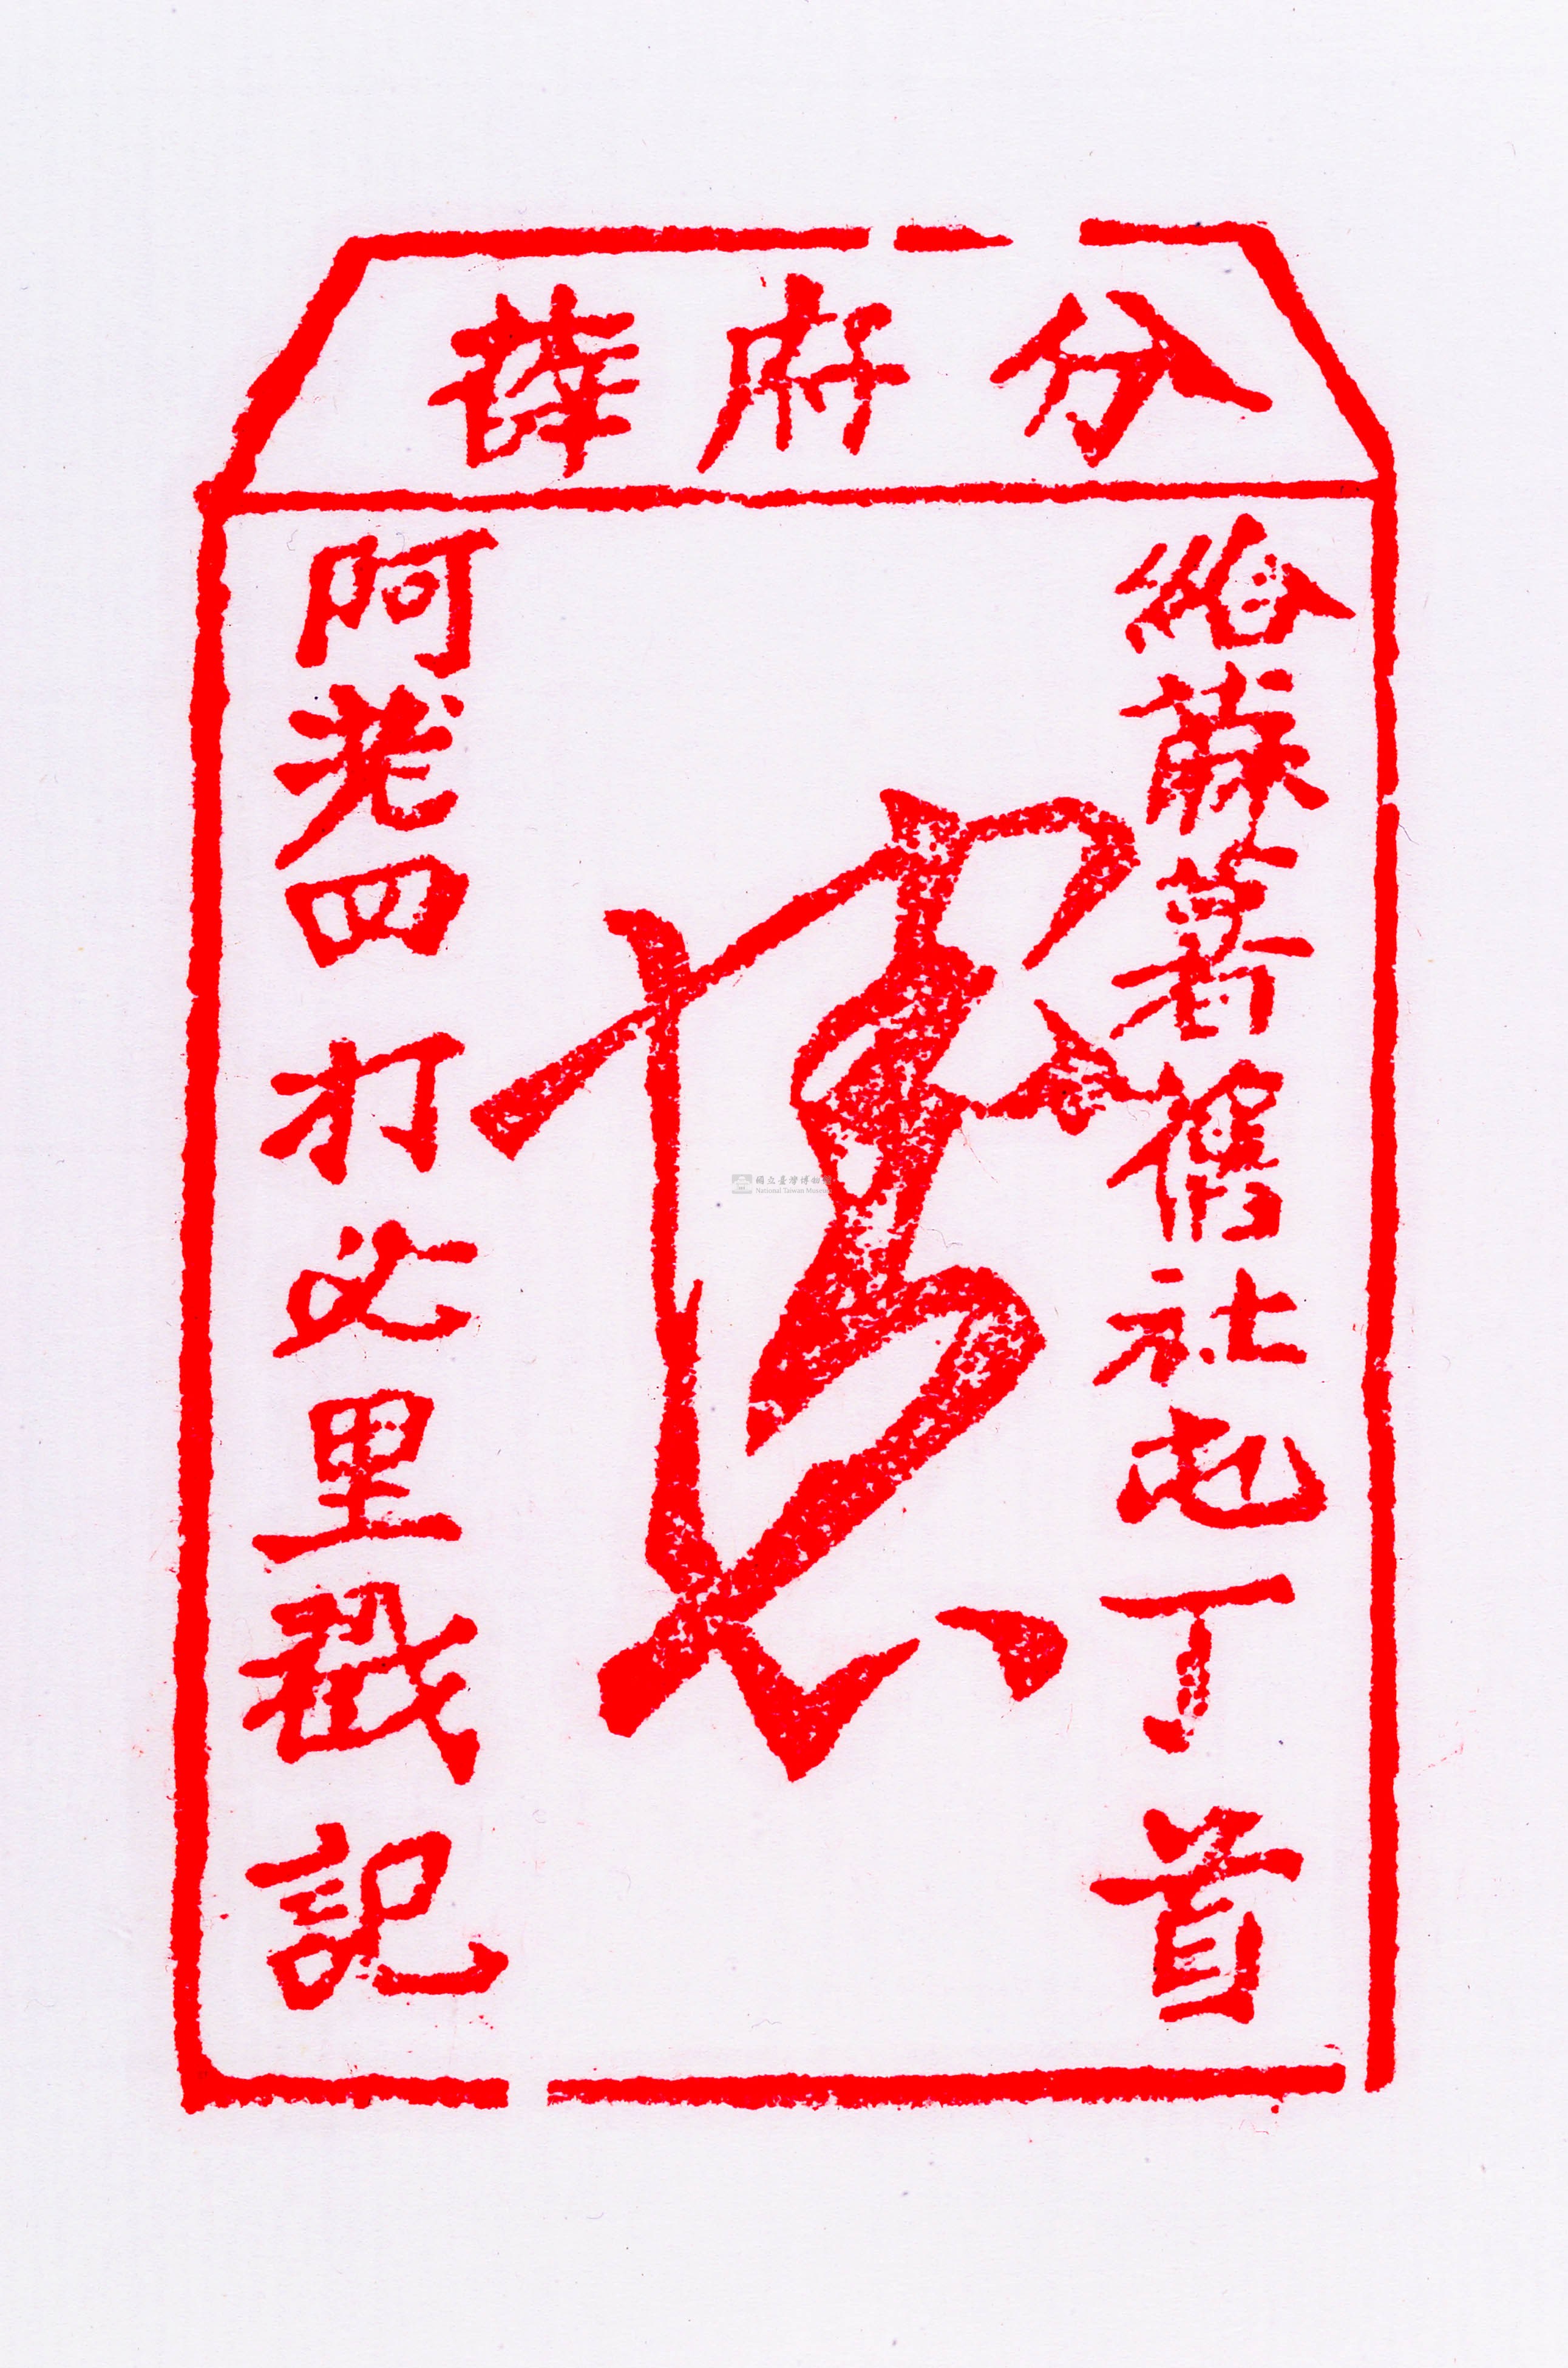 分府薛
給蔴薯舊社屯丁首
阿老四打必里戳記
國立臺灣博物館
National Taiwan Museum